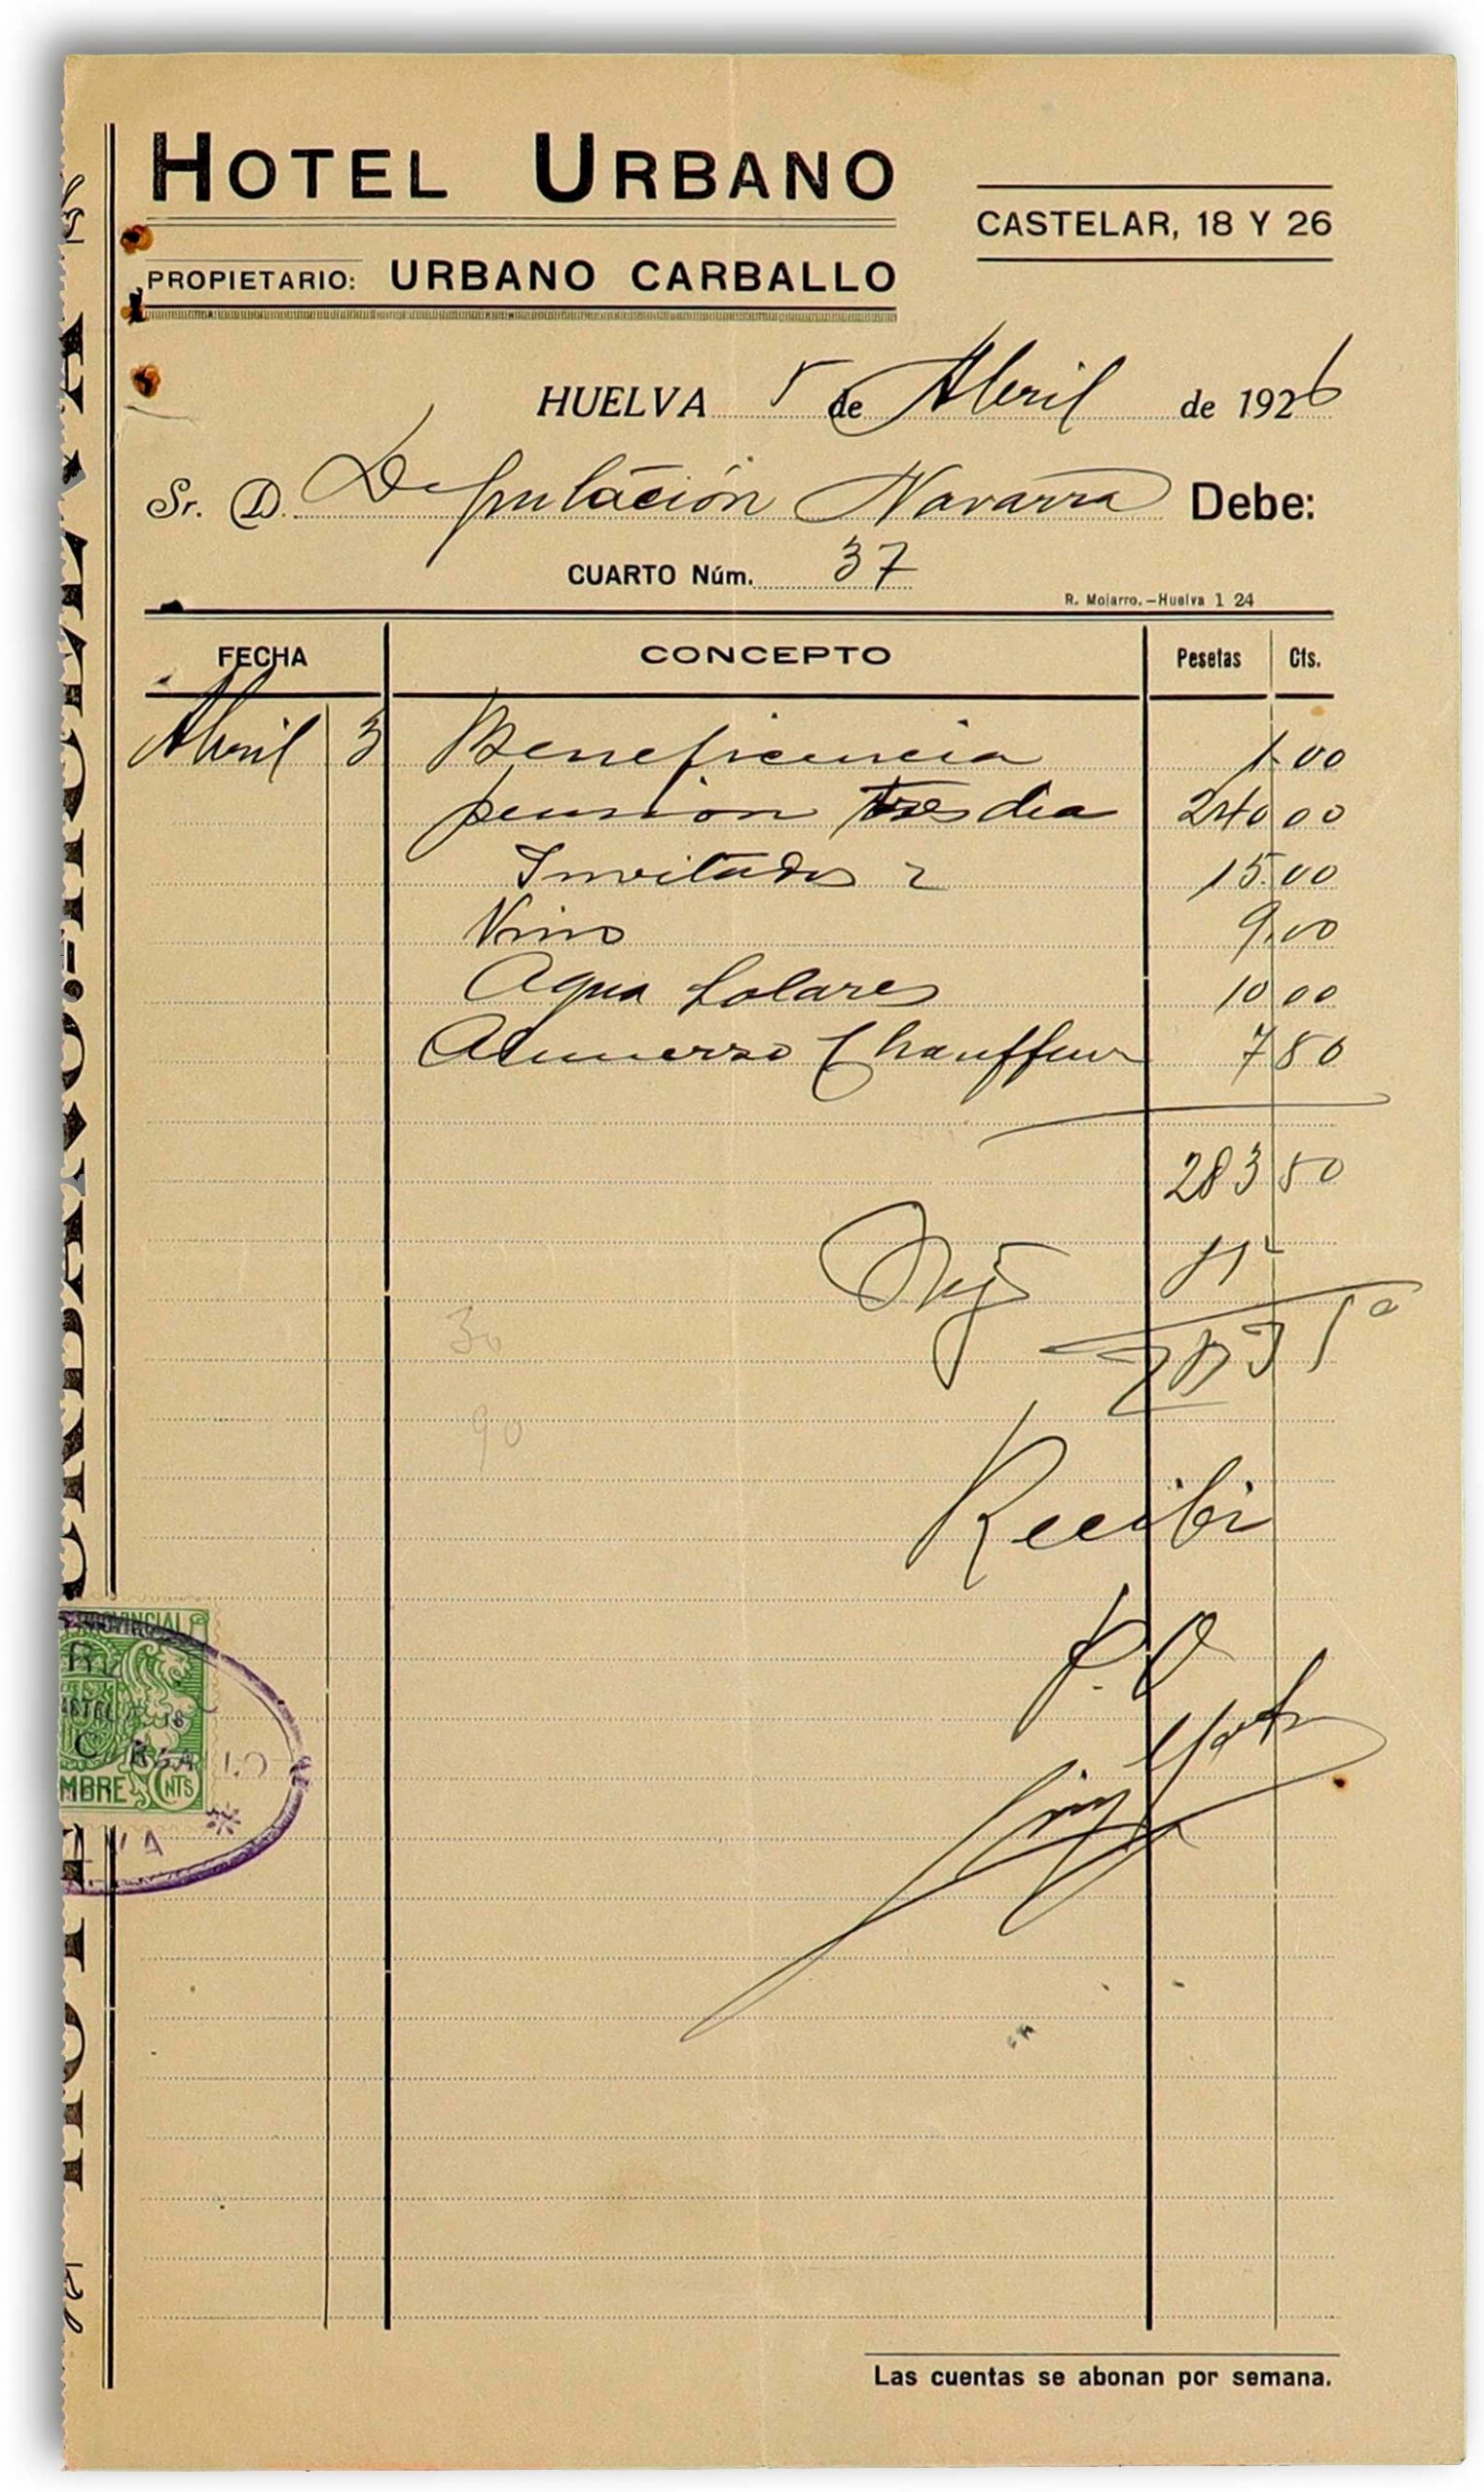 HOTEL URBANO
CASTELAR, 18 Y 26
PROPIETARIO: URBANO CARBALLO
HUELVA 5 de Abril de 1926
Sr. D. Deputación Navarra Debe:
CUARTO Núm. 37
R. Mojarro.—Huelva 1 24
FECHA CONCEPTO Pesetas Cts.
Abril 3 Beneficencia 1.00
pension tres dia 240 00
Invitados 2 15.00
Vino 9.00
Agua Solares 10 00
Almuerzo Chauffeur 7 80
283 50
30
90
Recibi
P.O
PROVINCIAL
MBRE CNTS
Las cuentas se abonan por semana.